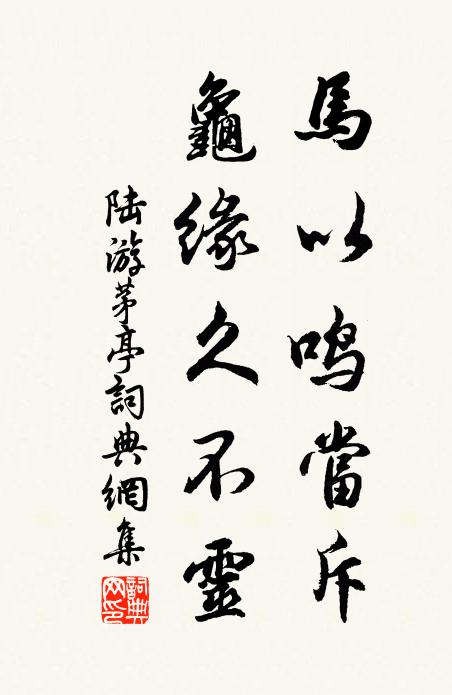 馬以鳴當斥
龜緣久不靈
陸游茅亭詞典網集
詞典网印